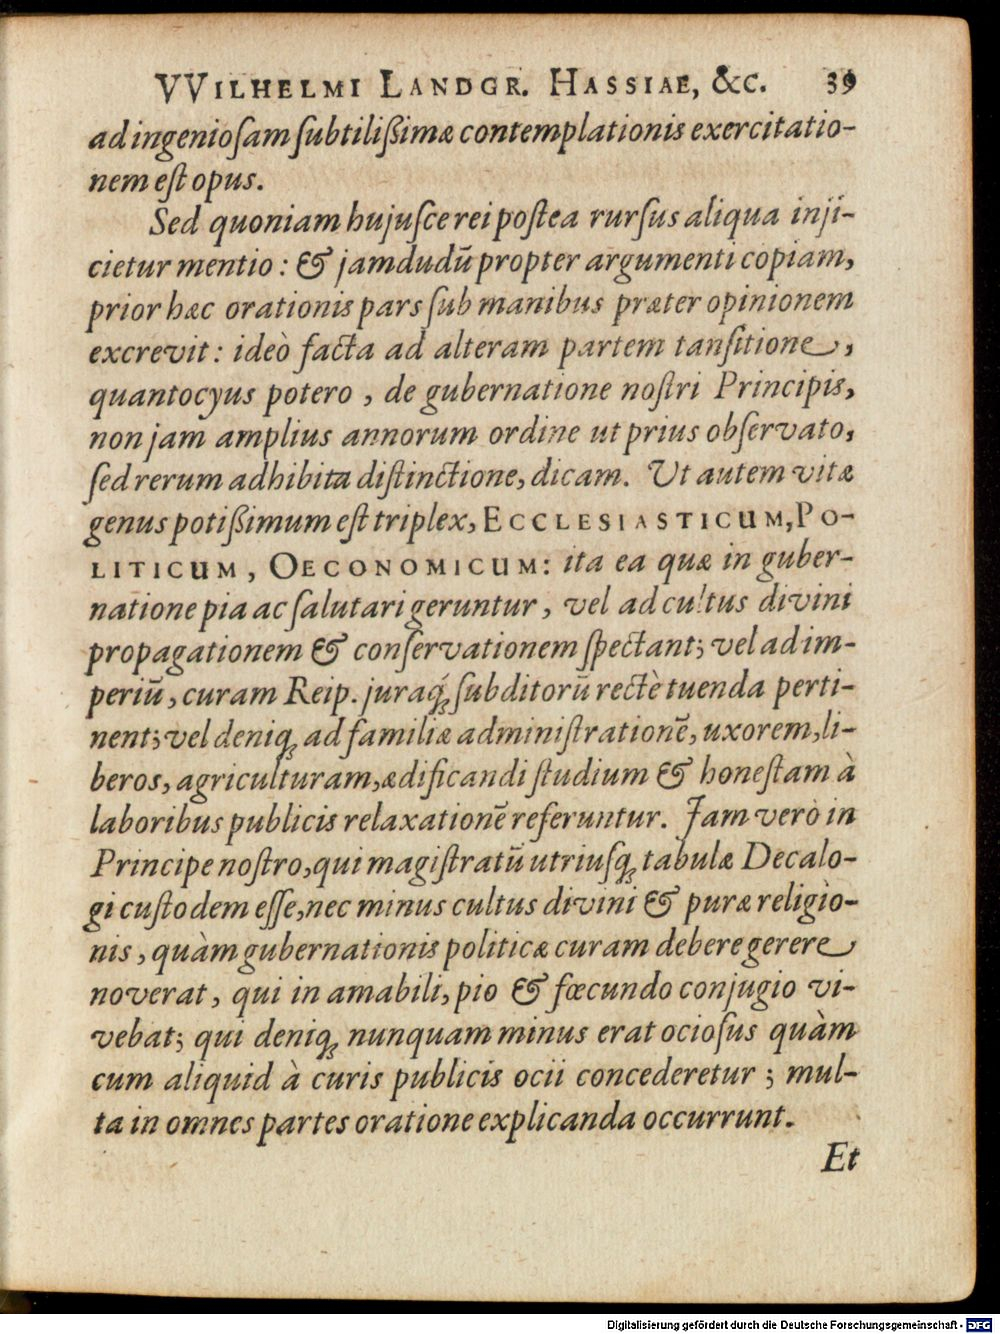 VVILHELMI LANDGR. HASSIAE, &C. 39
ad ingenioſam ſubtilißimæ contemplationis exercitatio-
nem eſt opus.
Sed quoniam hujuſce rei poſtea rurſus aliqua inji-
cietur mentio: & jamdudū propter argumenti copiam,
prior hæc orationis pars ſub manibus præter opinionem
excrevit: ideò facta ad alteram partem tanſitione,
quantocyus potero, de gubernatione noſtri Principis,
non jam amplius annorum ordine ut prius obſervato,
ſed rerum adhibita diſtinctione, dicam. Ut autem vitæ
genus potißimum eſt triplex, ECCLESIASTICUM, PO-
LITICUM, OECONOMICUM: ita ea quæ in guber-
natione pia ac ſalutari geruntur, vel ad cultus divini
propagationem & conſervationem ſpectant; vel ad im-
periū, curam Reip. juraq́ꝫ ſubditorū rectè tuenda perti-
nent; vel deniqꝫ ad familiæ adminiſtrationē, uxorem, li-
beros, agriculturam, ædificandi ſtudium & honeſtam à
laboribus publicis relaxationē referuntur. Jam verò in
Principe noſtro, qui magiſtratū utriuſqꝫ tabulæ Decalo-
gi cuſtodem eſſe, nec minus cultus divini & puræ religio-
nis, quàm gubernationis politicæ curam debere gerere
noverat, qui in amabili, pio & fœcundo conjugio vi-
vebat; qui deniqꝫ nunquam minus erat ocioſus quàm
cum aliquid à curis publicis ocii concederetur; mul-
ta in omnes partes oratione explicanda occurrunt.
Et
Digitalisierung gefördert durch die Deutsche Forschungsgemeinschaft - DFG